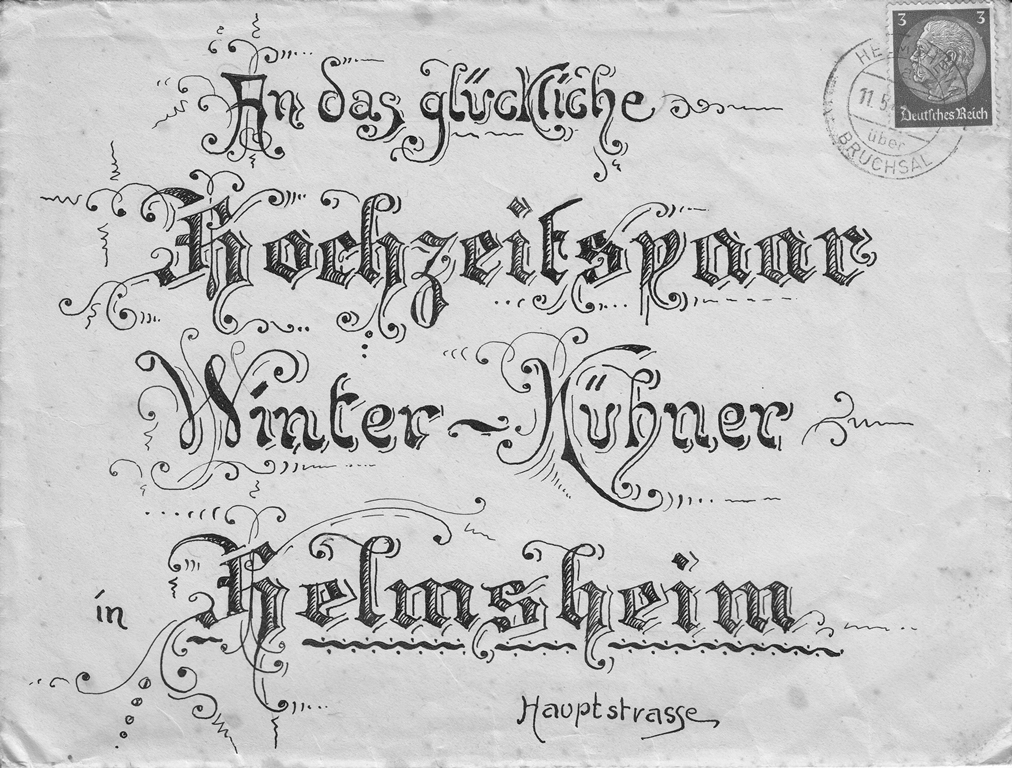 3 3
Deutsches Reich
11.5
über
BRUCHSAL
An das glückliche
Hochzeitspaar
Winter-Kühner
in Helmsheim
Hauptstrasse